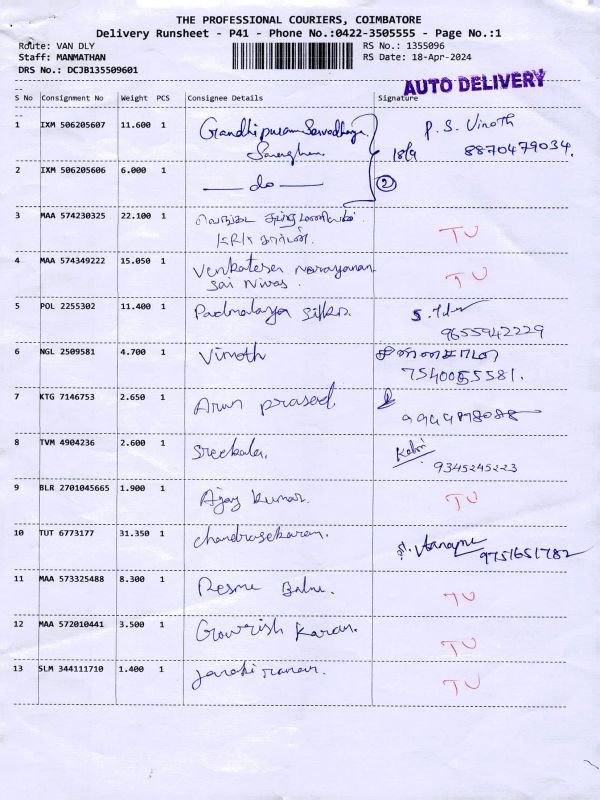 THE PROFESSIONAL COURIERS, COIMBATORE
Delivery Runsheet - P41 - Phone No.:0422-3505555 - Page No.:1
Route: VAN DLY
Staff: MANMATHAN
DRS No.: DCJB135509601
RS No.: 1355096
RS Date: 18-Apr-2024
AUTO DELIVERY
S No Consignment No Weight PCS Consignee Details Signature
1 IXM 506205607 11.600 1 Gandhipuram P. S. Vinoth
8870479034.
2 IXM 506205606 6.000 1 — do — 2
3 MAA 574230325 22.100 1 TU
4 MAA 574349222 15.050 1 Venkatesa Narayanan TU
Sai Nivas.
5 POL 2255302 11.400 1 Padmalaya Silks
9655942229
6 NGL 2509581 4.700 1 Vinoth
7 KTG 7146753 2.650 1 Arun prasad
8 TVM 4904236 2.600 1 Sreekala.
9345245223
9 BLR 2701045665 1.900 1 Ajay Kumar. TU
10 TUT 6773177 31.350 1 Chandrasekaran.
9751651782
11 MAA 573325488 8.300 1 TU
12 MAA 572010441 3.500 1 Gowrish Karan. TU
13 SLM 344111710 1.400 1 TU